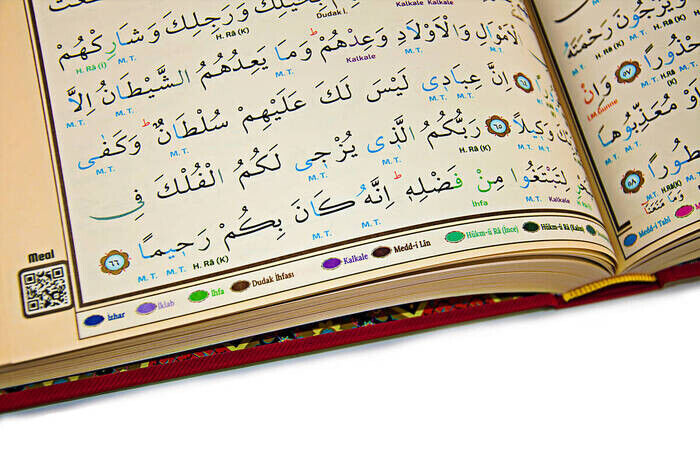 وَرَجِلِكَ وَشَارِكْهُمْ
Dudak İ. H. Râ (K) H. Râ (İ) M. T.
Kalkale Kalkale
الْاَمْوَالِ وَالْاَوْلَادِ وَعِدْهُمْ ط وَمَا يَعِدُهُمُ الشَّيْطَانُ اِلَّا
M. T. M. T. Kalkale M. T. M. T. M. T.
٦٤ اِنَّ عِبَاد۪ي لَيْسَ لَكَ عَلَيْهِمْ سُلْطَانٌ ط وَكَفٰى
M. T. M. T. M. T. M. T.
وَك۪يلًا ٦٥ رَبُّكُمُ الَّذ۪ي يُزْج۪ي لَكُمُ الْفُلْكَ فِي
M. T. M. T. H. Râ (K) M. T. M. T.
لِتَبْتَغُوا مِنْ فَضْلِه۪ ط اِنَّهُ كَانَ بِكُمْ رَح۪يمًا ٦٦
M. T. Kalkale İhfa M. T. M. T. M. T. M. T. H. Râ (K) M. T.
Meal
İzhar İklab İhfa Dudak İhfası Kalkale Medd-i Lin Hükm-ü Râ (İnce) Hükm-ü Râ (Kalın)
وَيَرْجُونَ رَحْمَتَهُ
ذُورًا ٥٧ وَاِنْ
اَوْ مُعَذِّبُوهَا
طُورًا ٥٨
وَمَا مَنَعَنَا
Medd-i Tabi